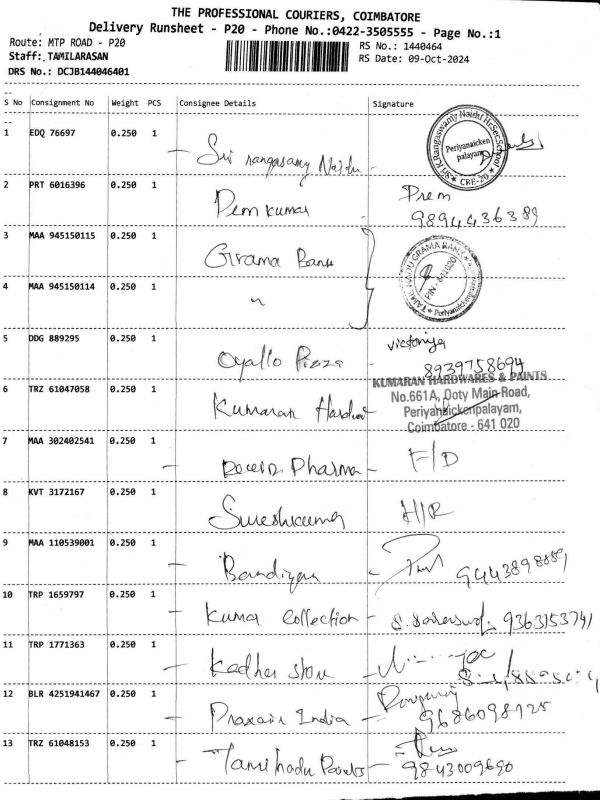 THE PROFESSIONAL COURIERS, COIMBATORE
Delivery Runsheet - P20 - Phone No.:0422-3505555 - Page No.:1
Route: MTP ROAD - P20
Staff: TAMILARASAN
DRS No.: DCJB144046401
RS No.: 1440464
RS Date: 09-Oct-2024
S No Consignment No Weight PCS Consignee Details Signature
1 EDQ 76697 0.250 1
Sri rangasamy Naidu
Sri K.Rangaswamy Naidu Hr.Sec.School
Periyanaicken
palayam
CBE-20
2 PRT 6016396 0.250 1
Pem kumar Prem
9894436389
3 MAA 945150115 0.250 1
Grama Bank
TAMIL NADU GRAMA BANK
4 MAA 945150114 0.250 1
〃
5 DDG 889295 0.250 1
Oyallo Pizza victoriya
8939758694
6 TRZ 61047058 0.250 1
Kumaran
KUMARAN HARDWARES & PAINTS
No.661A, Ooty Main Road,
Periyanaickenpalayam,
Coimbatore - 641 020
7 MAA 302402541 0.250 1
Pharma F/D
8 KVT 3172167 0.250 1
Sureshkumar H/R
9 MAA 110539001 0.250 1
10 TRP 1659797 0.250 1
Kumar Collection 9363153741
11 TRP 1771363 0.250 1
Kadher store
12 BLR 4251941467 0.250 1
Praxair India
9686098125
13 TRZ 61048153 0.250 1
Tamilnadu
9843009690